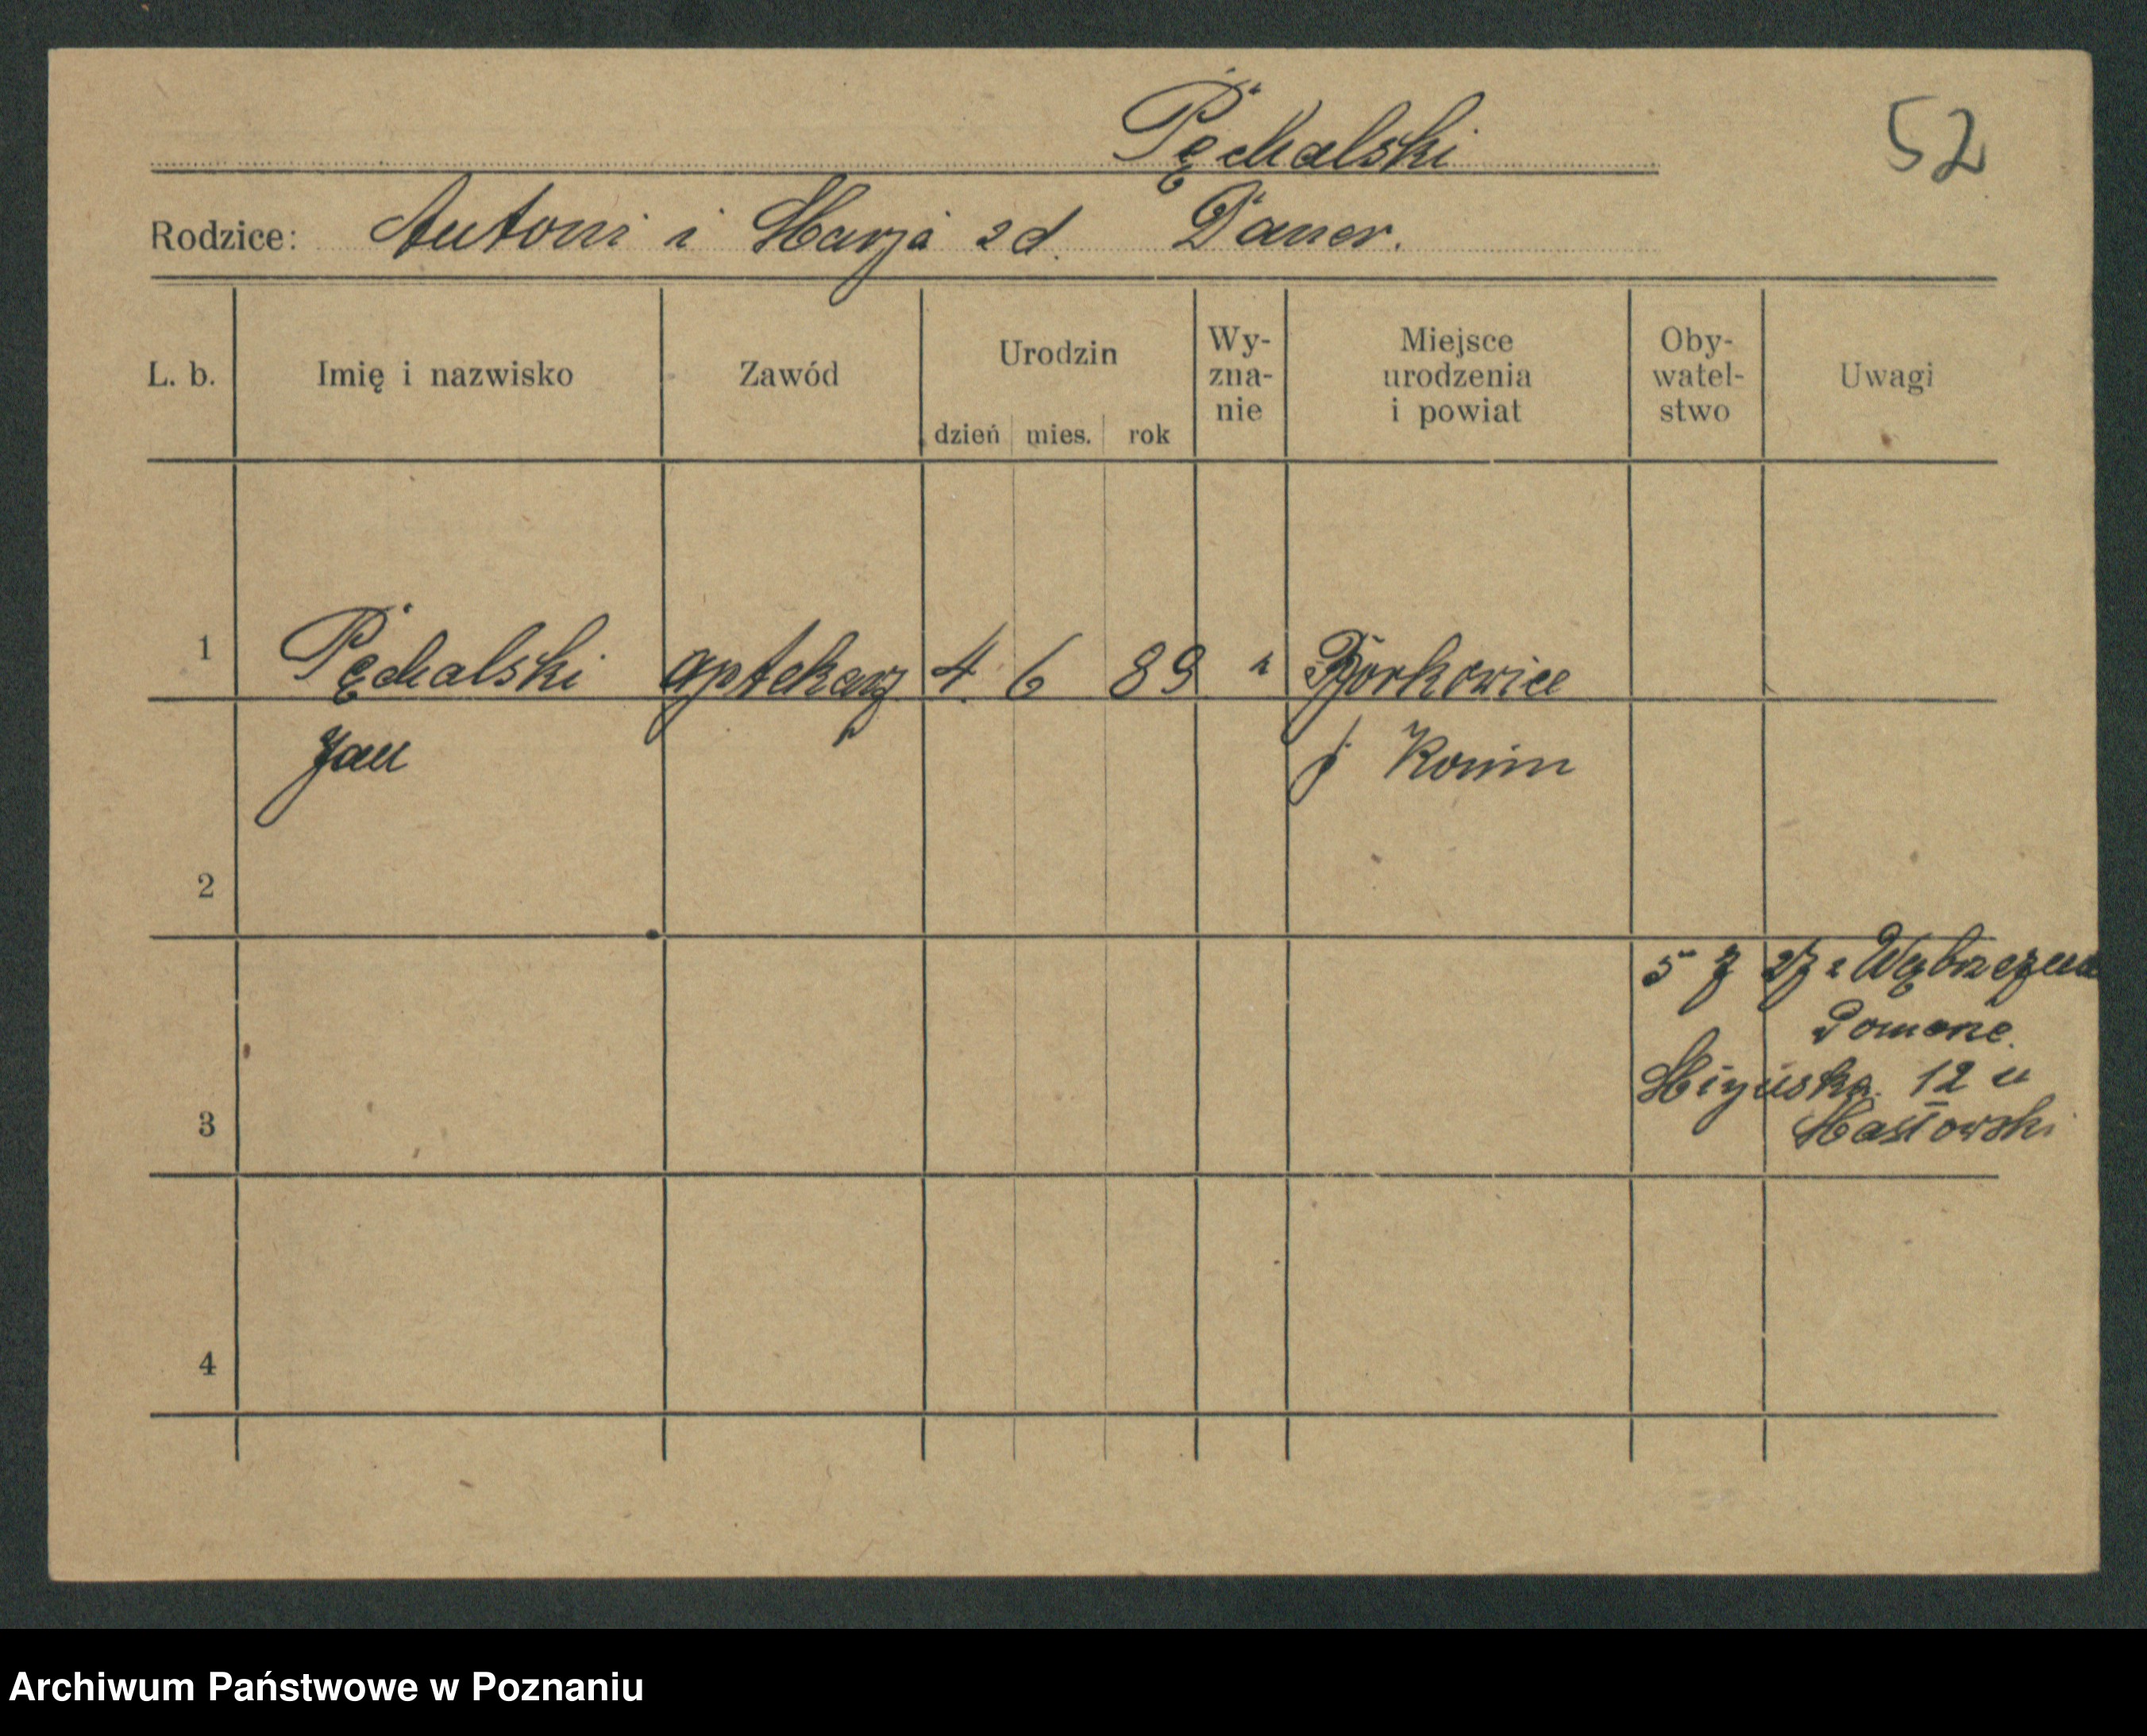 Pęchalski
52
Rodzice: Antoni i Marja zd. Daner.
L. b.
Imię i nazwisko
Zawód
Urodzin
dzień mies. rok
Wy-
zna-
nie
Miejsce
urodzenia
i powiat
Oby-
watel-
stwo
Uwagi
1 Pęchalski aptekarz 4. 6 89
Jan
p Konin
2
5 7 27 z Wąbrzeźna
Pomorze.
12 u
Masłowski
3
4
Archiwum Państwowe w Poznaniu